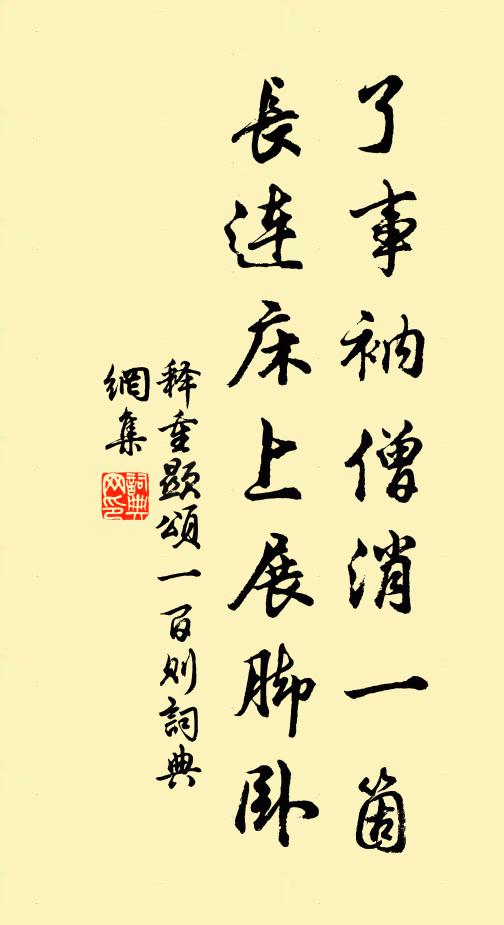 了事衲僧消一箇
長連床上展脚卧
释重顯頌一百则詞典
網集
詞典
网印